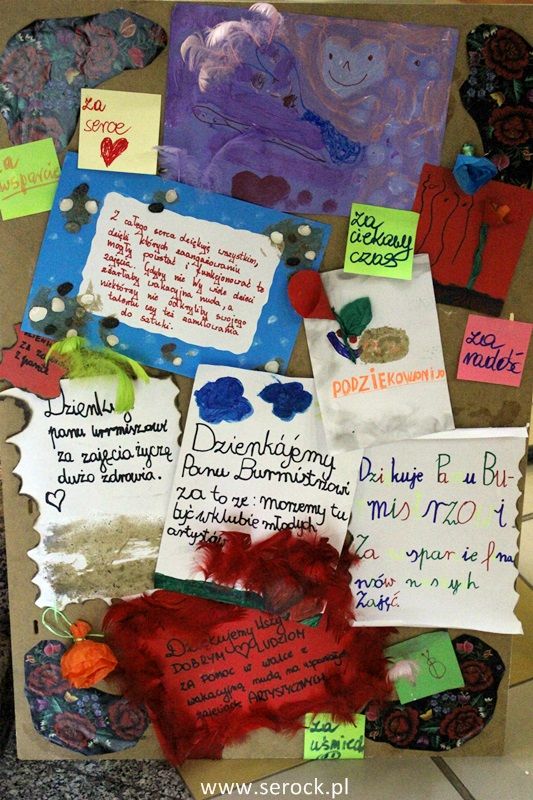 za
serce
za
wsparcie
Z całego serca dziękuję wszystkim,
dzięki których zaangażowaniu
mogły powstać i funkcjonować te
zajęcia. Gdyby nie Wy wiele dzieci
zżarłaby wakacyjna nuda, a
niektórzy nie odkryliby swojego
talentu czy też zamiłowania
do sztuki.
za
ciekawy
czas
PODZIĘKOWANIA
za
radość
Dzienkuję
panu burmiszowi
za zajęcia. życzę
dużo zdrowia.
Dzienkájemy
Panu Burmistrzowi
za to że: możemy tu
być w klubie młodych
artystów
Dziękuje Panu Bu-
mistrzowi
Za wsparcie fina
nsów naszych
Zajęć.
Dziękujemy Wszystkim
DOBRYM LUDZIOM
ZA POMOC W WALCE Z
wakacyjną nudą na wspaniałych
zajęciach ARTYSTYCZNYCH
za
uśmiech
www.serock.pl